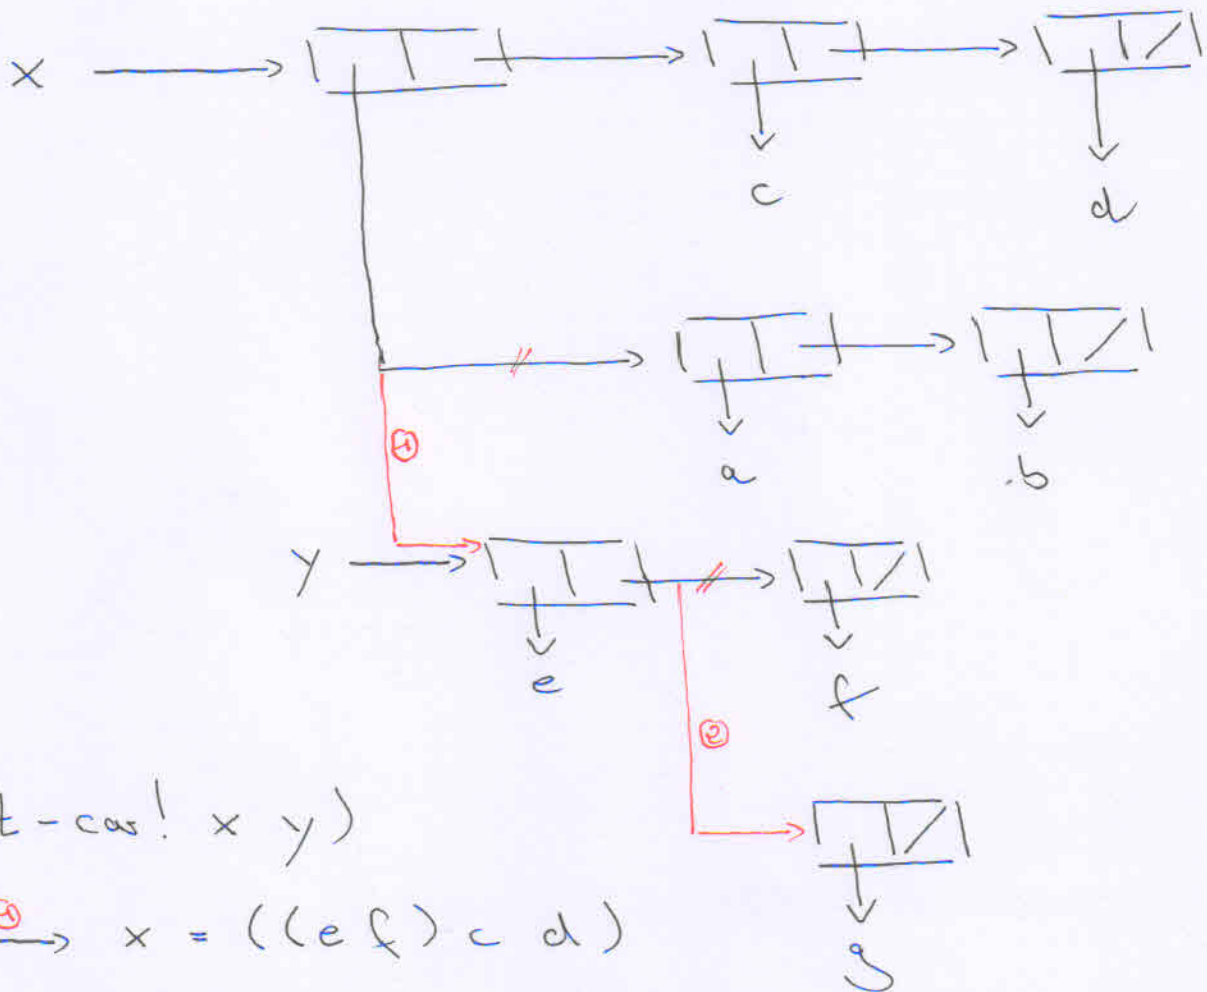 x
c
d
a
.b
y
e
f
2
t-car! x y)
1
x = ((e f) c d)
g